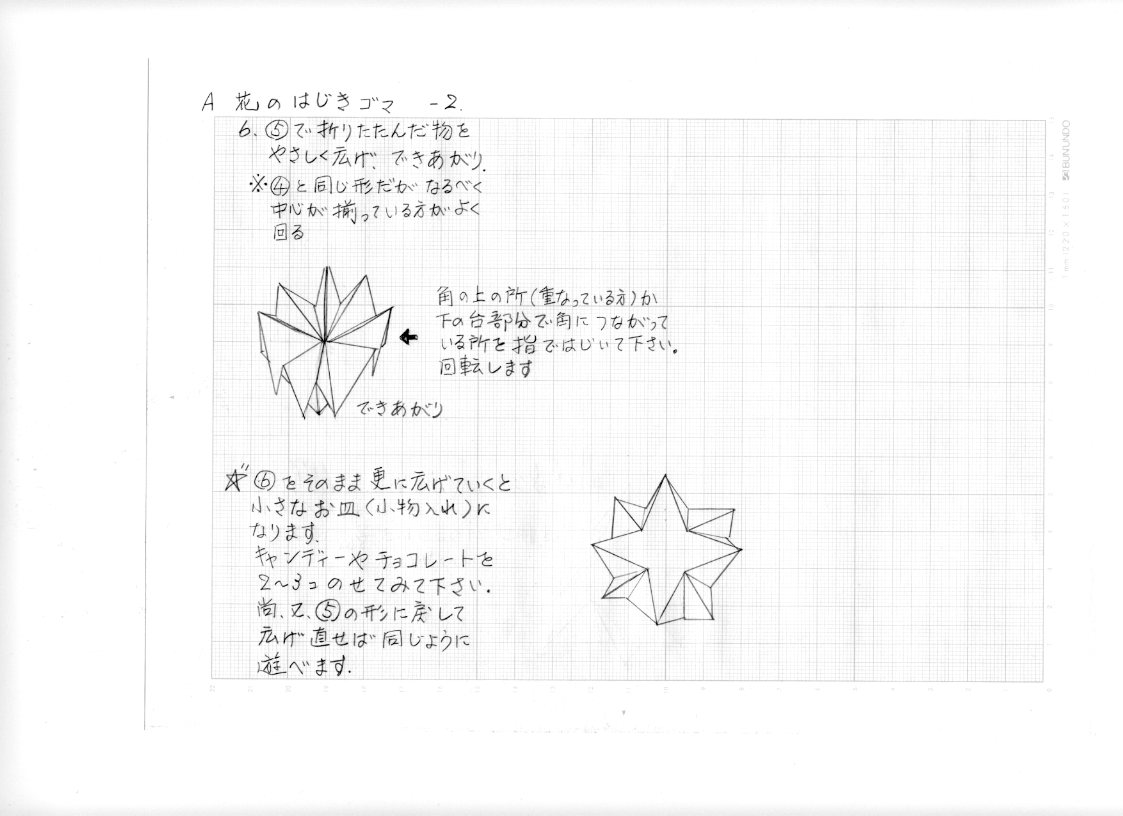 A 花のはじきゴマ -2.
6. ⑤で折りたたんだ物を
やさしく広げ、できあがり.
※④と同じ形だが なるべく
中心が揃っている方がよく
回る
角の上の所(重なっている方)か
下の台部分で角につながって
いる所を指ではじいて下さい。
回転します
できあがり
☆ ⑥をそのまま更に広げていくと
小さなお皿(小物入れ)に
なります.
キャンディーやチョコレートを
2〜3コのせてみて下さい.
尚、又、⑤の形に戻して
広げ直せば同じように
遊べます.
BUNUNDO